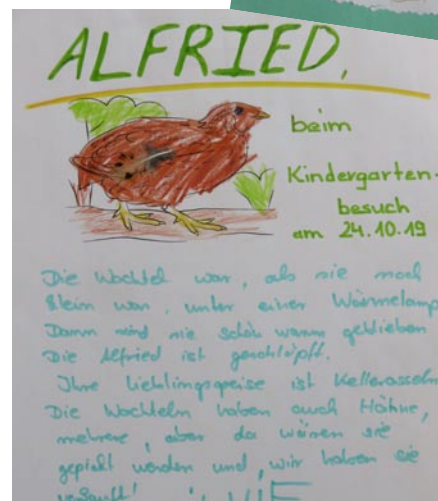 ALFRIED,
beim
Kindergarten-
besuch
am 24.10.19
Die Wachtel war, als sie noch
klein war, unter einer Wärmelamp
Dann sind sie schön warm geblieben
Die Alfried ist geschlüpft.
Ihre Lieblingsspeise ist Kellerasseln
Die Wachteln haben auch Hähne,
mehrere, aber da wären sie
gepickt worden und, wir haben sie
verkauft!